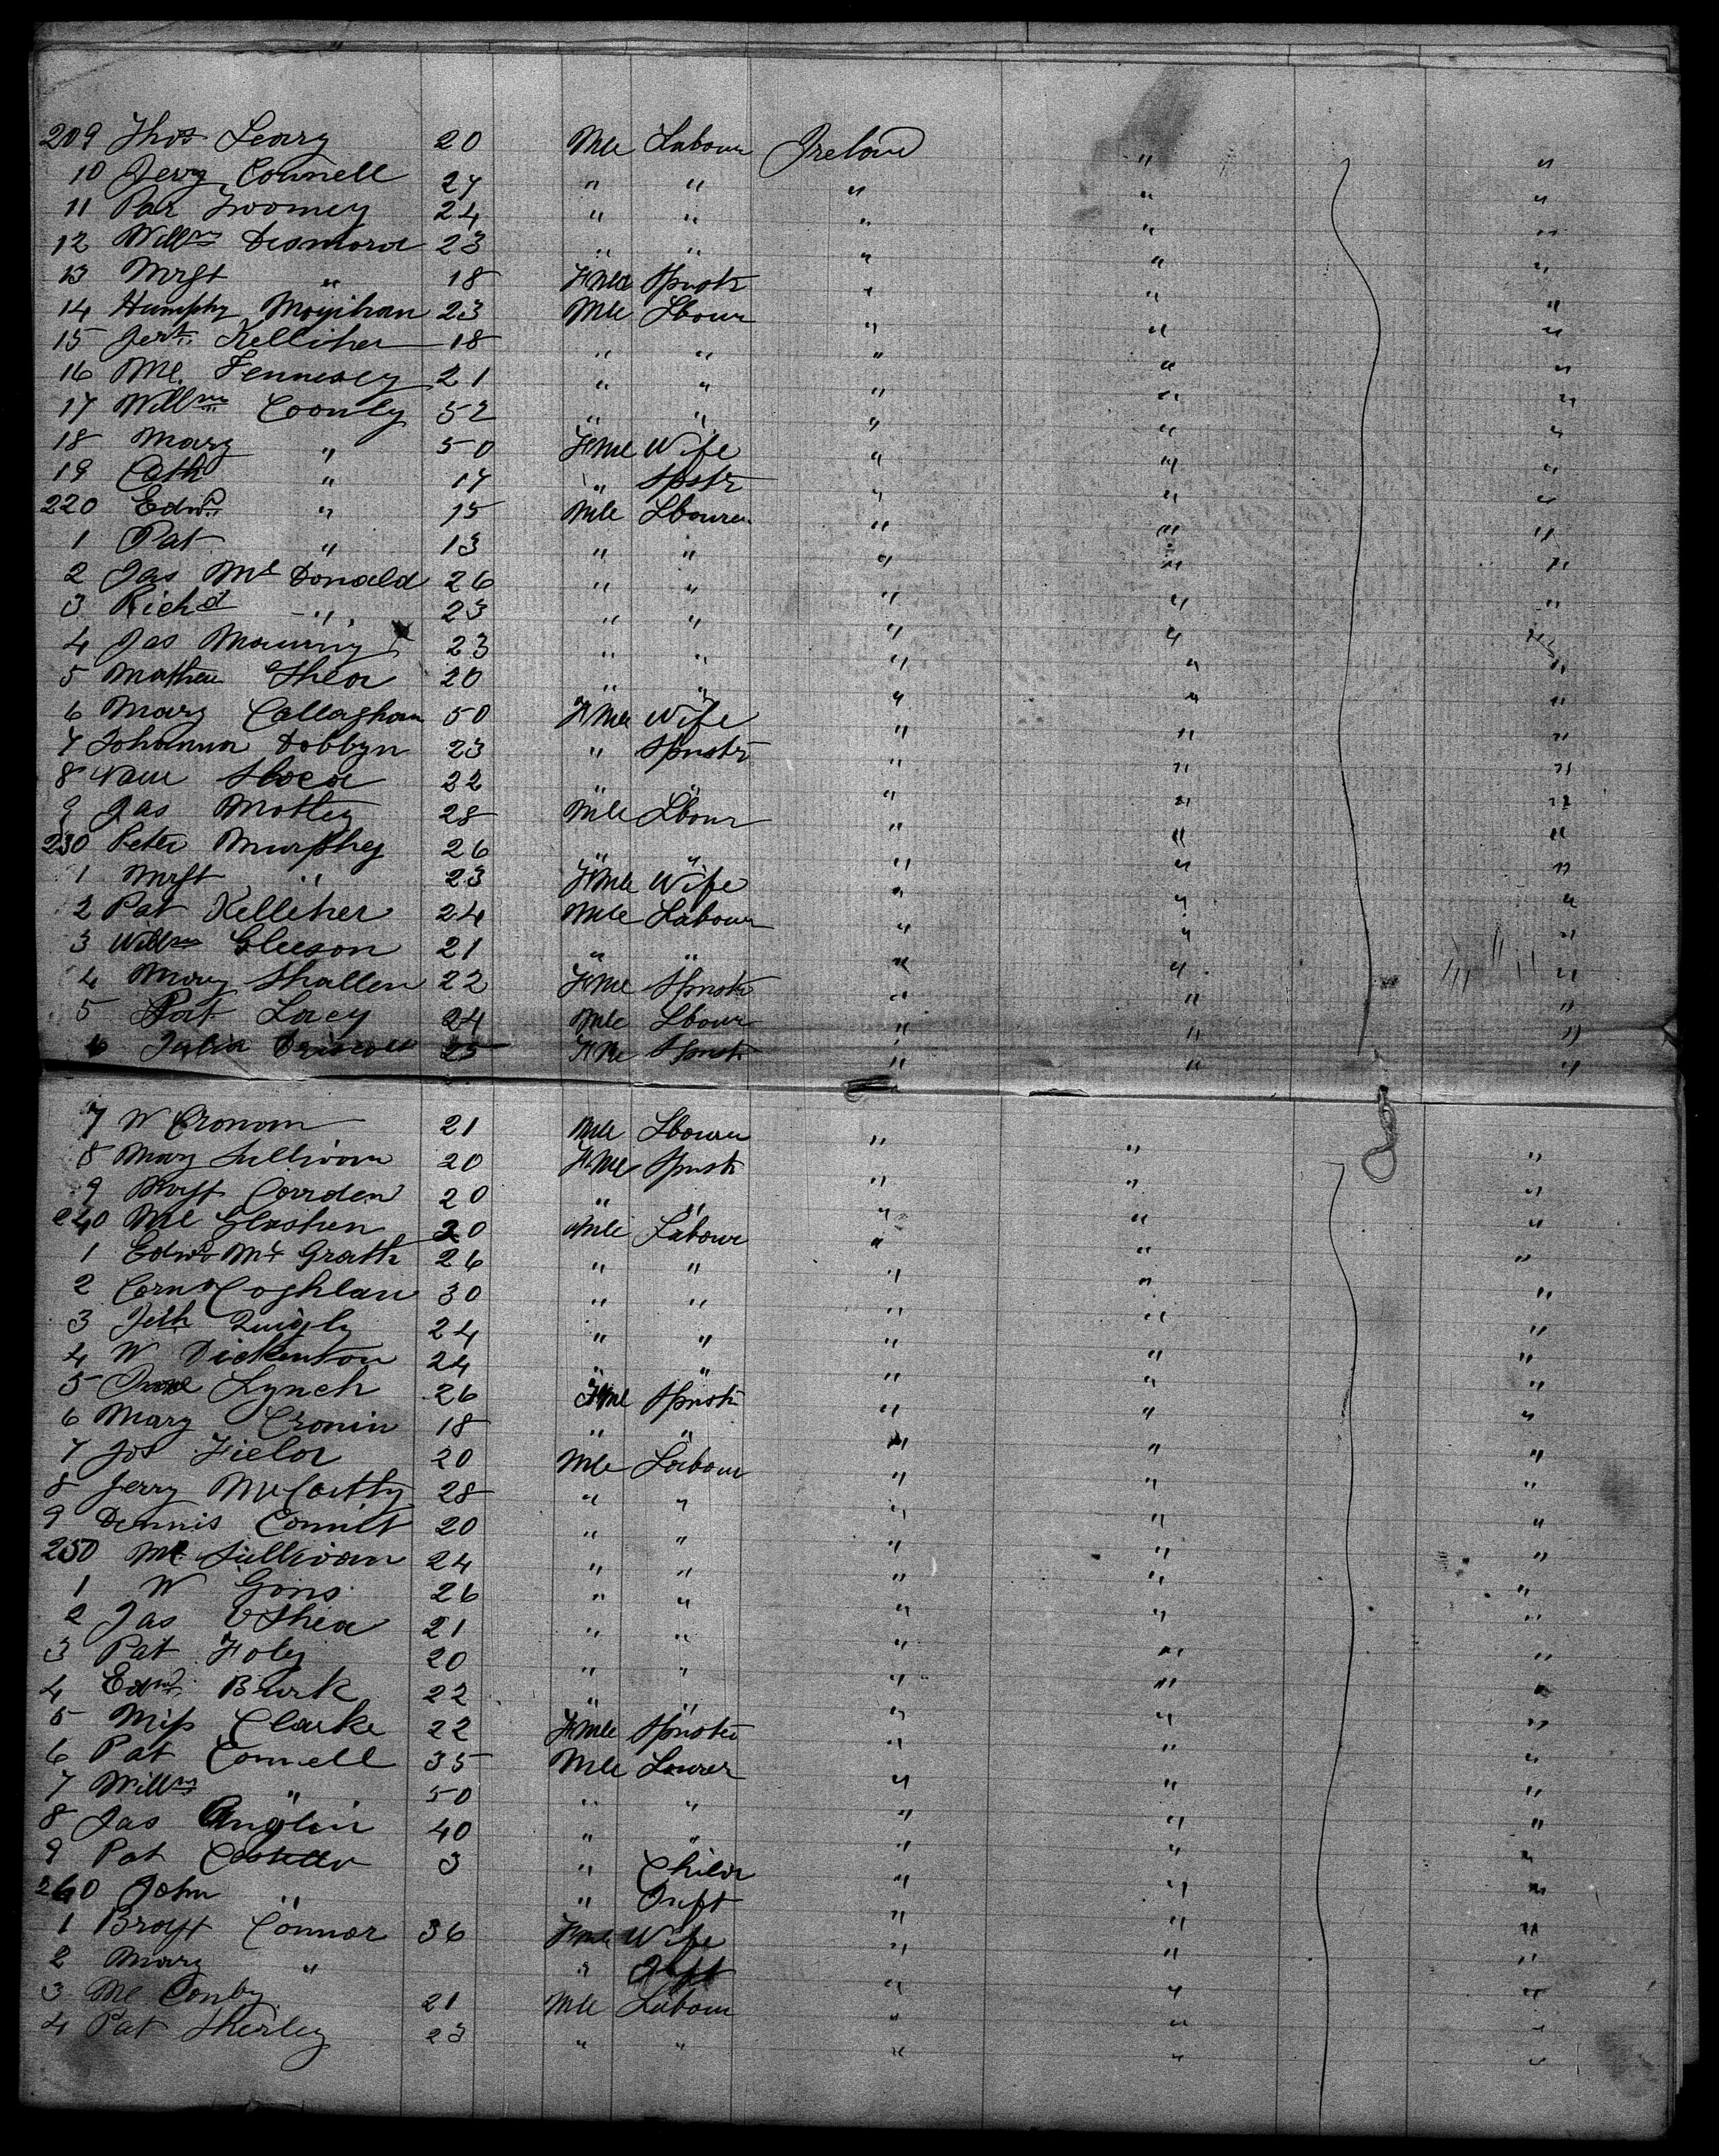 209 Thos Leary 20 Mle Labour Ireland " "
10 Jerry Connell 27 " " " " "
11 Pat Twomey 24 " " " " "
12 Willm Desmond 23 " " " " "
13 Mrgt " 18 FMle Spnstr " " "
14 Humphy Moyihan 23 Mle Lbour " " "
15 Jerh Kelliher 18 " " " " "
16 Ml. Fennesey 21 " " " " "
17 Willm Coonly 52 " " " " "
18 Mary " 50 FMle Wife " " "
19 Cath " 17 " Spstr " " "
220 Edwd " 15 Mle Lbourer " " "
1 Pat " 13 " " " " "
2 Jas Mc Donald 26 " " " " "
3 Richd " 23 " " " " "
4 Jas 23 " " " " "
5 Mathew Shea 20 " " " " "
6 Mary Callaghan 50 FMle Wife " " "
7 Johanna Dobbyn 23 " Spnstr " " "
8 Shea 22 " " " " "
9 Jas Motley 28 Mle Lbour " " "
230 Peter Murphey 26 " " " " "
1 Mrgt " 23 FMle Wife " " "
2 Pat Kelliher 24 Mle Labour " " "
3 Willm Gleeson 21 " " " " "
4 Mary Shallen 22 FMle Spnstr " " "
5 Pat Lacy 24 Mle Lbour " " "
6 Julia Driscoll 25 FMle Spnstr " " "
7 W Cronan 21 Mle Lbourer " " "
8 Mary Sullivan 20 FMle Spnstr " " "
9 Corrden 20 " " " " "
240 Ml Glashen 20 Mle Labour " " "
1 Edwd Mc Grath 26 " " " " "
2 Corns Coghlan 30 " " " " "
3 Quigly 24 " " " " "
4 W Dickenson 24 " " " " "
5 Lynch 26 FMle Spnstr " " "
6 Mary Cronin 18 " " " " "
7 Jos Field 20 Mle Labour " " "
8 Jerry McCarthy 28 " " " " "
9 Dennis 20 " " " " "
250 Ml Sullivan 24 " " " " "
1 W 26 " " " " "
2 Jas OShea 21 " " " " "
3 Pat Foley 20 " " " " "
4 Edwd Burk 22 " " " " "
5 Miss Clarke 22 FMle Spnster " " "
6 Pat Connell 35 Mle Lourer " " "
7 Willm " 50 " " " " "
8 Jas Anglin 40 " " " " "
9 Pat Costello 3 " Child " " "
260 John " " Inft " " "
1 Connor 36 FMle Wife " " "
2 Mary " " Inft " " "
3 Ml Conby 21 Mle Labour " " "
4 Pat Sherley 23 " " " " "